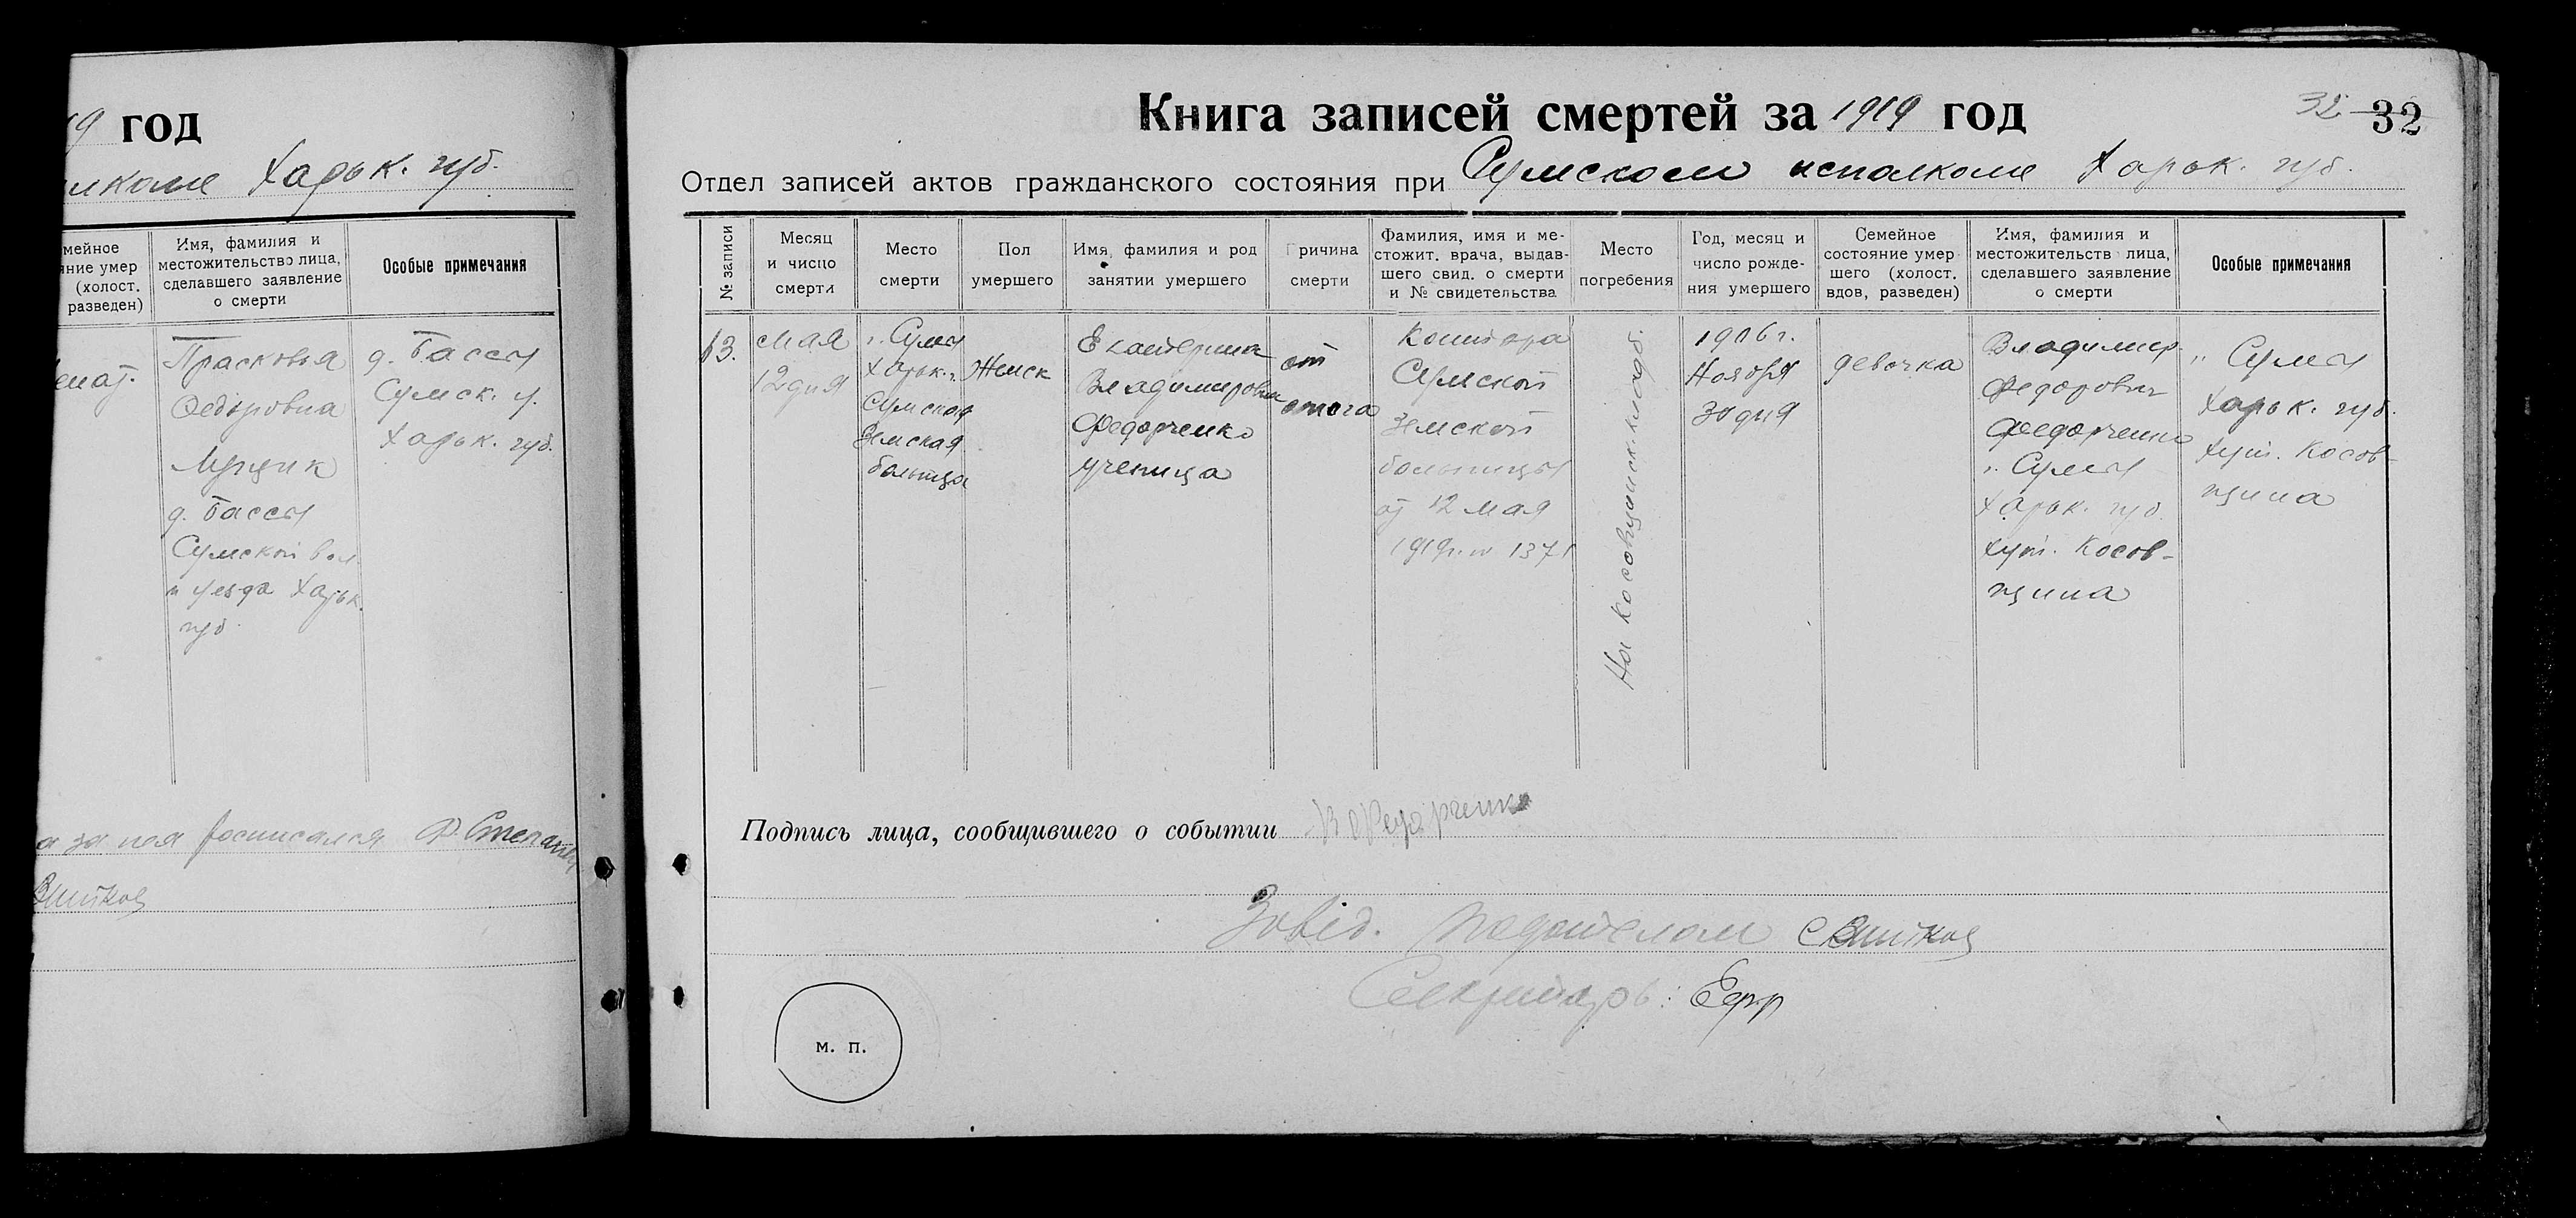 19 год
лкоме Харьк. губ.
мейное
яние умер
(холост.
разведен)
Имя, фамилия и
местожительство лица,
сделавшего заявление
о смерти
Особые примечания
Прасковья
Федоровна
Мущик
д. Бассы
Сумской вол.
и уезда Харьк.
губ.
д. Бассы
Сумск. у.
Харьк. губ.
а за нея росписался Ф. Степан
Книга записей смертей за 1919 год
32 32
Отдел записей актов гражданского состояния при Сумском исполкоме Харьк. губ.
№ записи
Месяц
и число
смерти
Место
смерти
Пол
умершего
Имя, фамилия и род
занятии умершего
Причина
смерти
Фамилия, имя и ме-
стожит. врача, выдав-
шего свид. о смерти
и № свидетельства
Место
погребения
Год, месяц и
число рожде-
ния умершего
Семейное
состояние умер
шего (холост.
вдов, разведен)
Имя, фамилия и
местожительств лица,
сделавшего заявление
о смерти
Особые примечания
13.
Мая
12 дня
г. Сумы
Харьк. г.
Сумская
Земская
больница
Женск
Екатерина
Владимировна
Федорченко
ученица
от
ожога
Контора
Сумской
Земской
больницы
от 12 мая
1919 г. № 1371
На Косовщинск. кладб.
1906 г.
Ноября
30 дня
девочка
Владимир
Федорович
Федорченко
г. Сумы
Харьк. губ.
хут. Косов-
щина
г. Сумы
Харьк. губ.
хут. Косов-
щина
Подпись лица, сообщившего о событии В Федорченко
Завед. подотделом
Секретарь:
м. п.